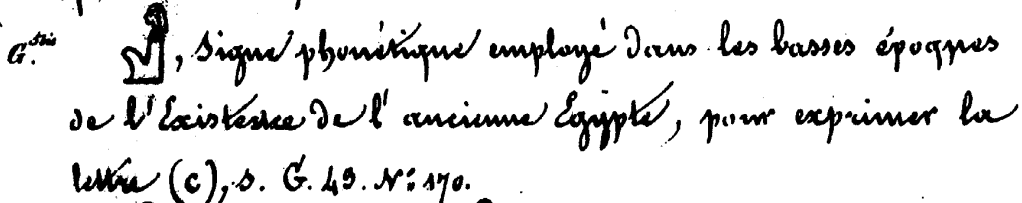 G.ᵈᵉˢ , Signe phonétique employé dans les basses époques
de l'Existence de l'ancienne Égypte, pour exprimer la
lettre (c), s. G. 49. N: 170.